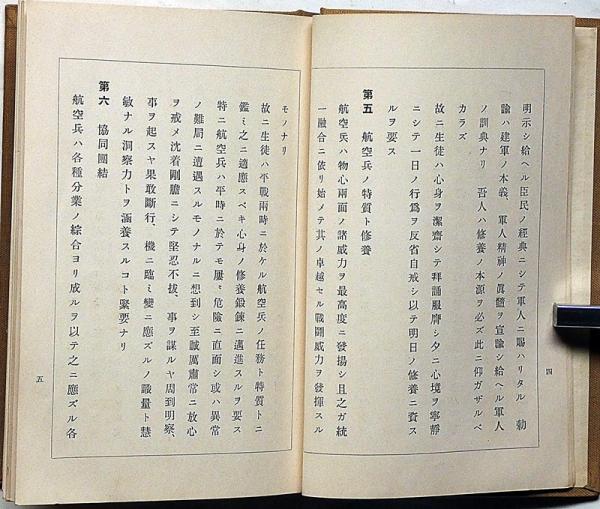 明示シ給ヘル臣民ノ經典ニシテ軍人ニ賜ハリタル 勅
諭ハ建軍ノ本義、軍人精神ノ眞髓ヲ宣諭シ給ヘル軍人
ノ訓典ナリ 吾人ハ修養ノ本源ヲ必ズ此ニ仰ガザルベ
カラズ
故ニ生徒ハ心身ヲ潔齋シテ拜誦服膺シ夕ニ心境ヲ寧靜
ニシテ一日ノ行爲ヲ反省自戒シ以テ明日ノ修養ニ資ス
ルヲ要ス
第五 航空兵ノ特質ト修養
航空兵ハ物心兩面ノ諸威力ヲ最高度ニ發揚シ且之ガ統
一融合ニ依リ始メテ其ノ卓越セル戰鬪威力ヲ發揮スル
四
モノナリ
故ニ生徒ハ平戰兩時ニ於ケル航空兵ノ任務ト特質トニ
鑑ミ之ニ適應スベキ心身ノ修養鍛鍊ニ邁進スルヲ要ス
特ニ航空兵ハ平時ニ於テモ屢〻危險ニ直面シ或ハ異常
ノ難局ニ遭遇スルモノナルニ想到シ至誠厲肅常ニ放心
ヲ戒メ沈着剛膽ニシテ堅忍不拔、事ヲ謀ルヤ周到明察、
事ヲ起スヤ果敢斷行、機ニ臨ミ變ニ應ズルノ識量ト慧
敏ナル洞察力トヲ涵養スルコト緊要ナリ
第六 協同團結
航空兵ハ各種分業ノ綜合ヨリ成ルヲ以テ之ニ應ズル各
五